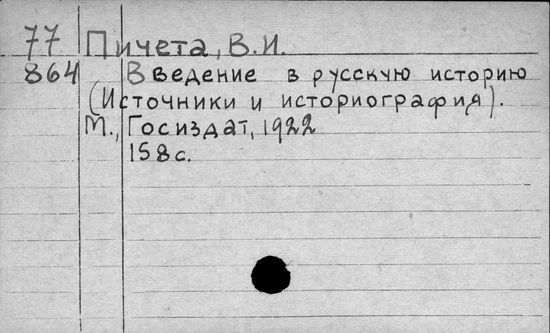 77 Пичета, В.И.
864 Введение в русскую историю
(Источники и историография).
М., Госиздат, 1922
158 с.